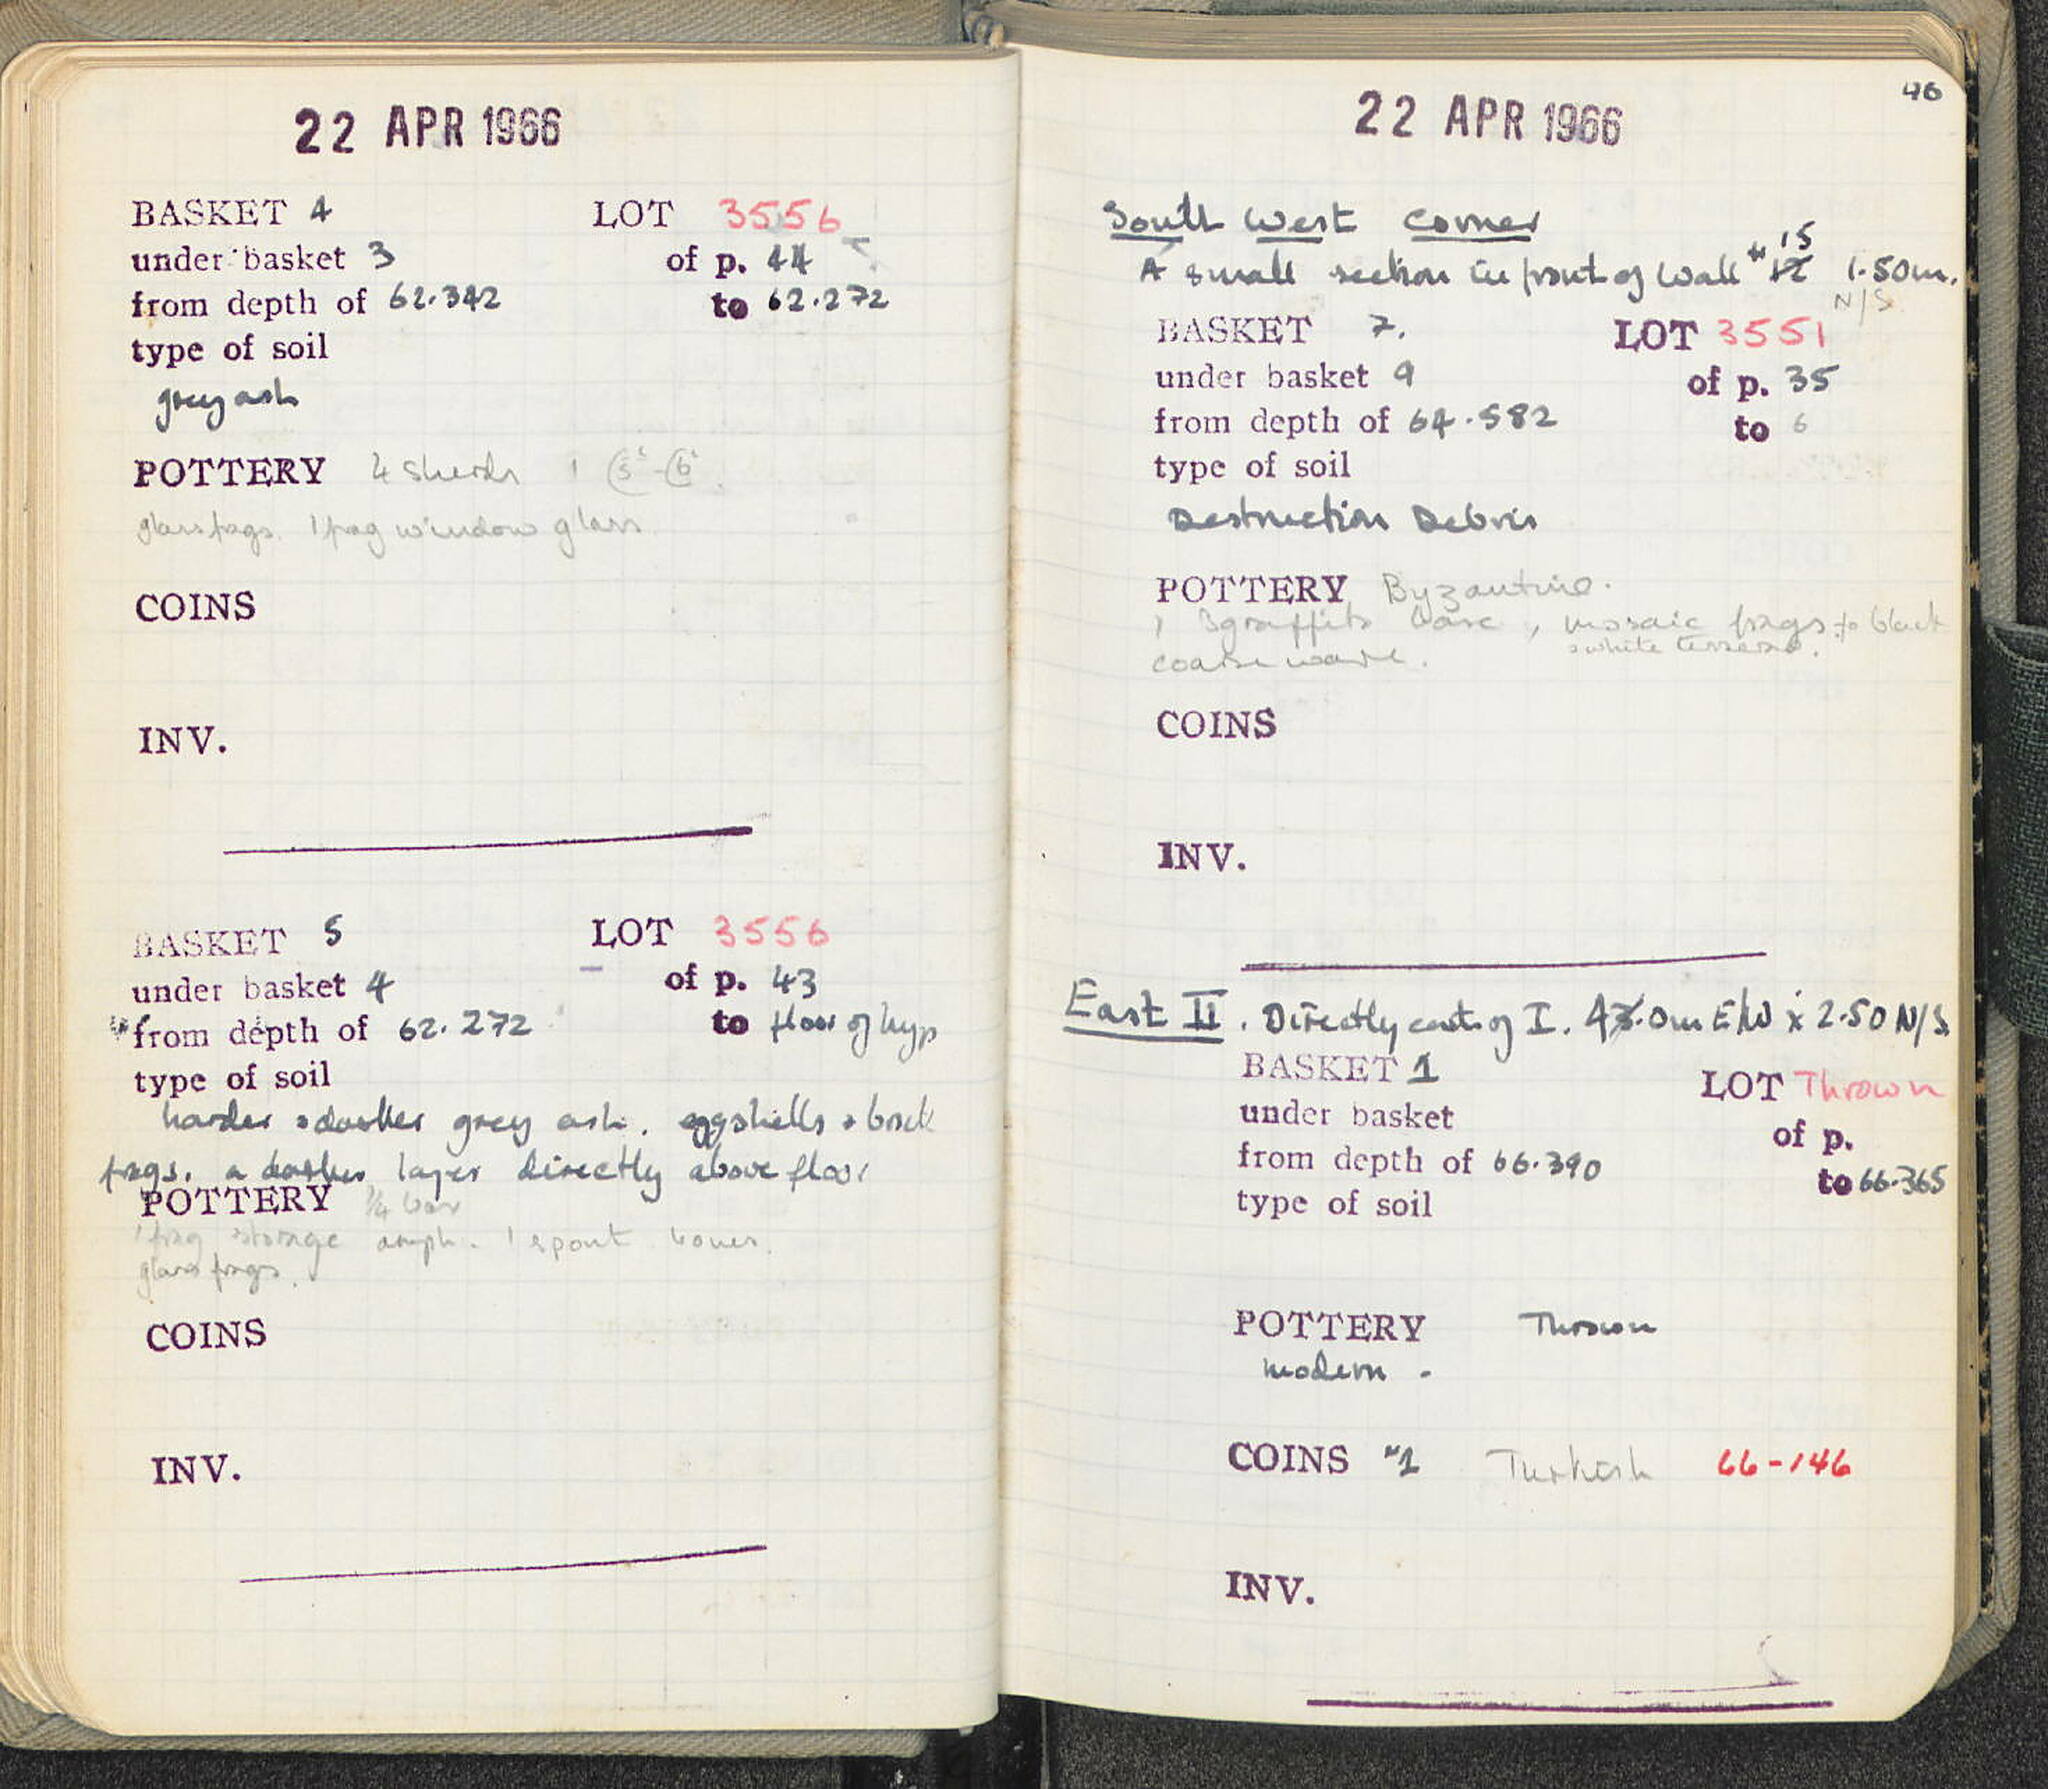 22 APR 1966
BASKET 4 LOT 3556
under basket 3 of p. 44
from depth of 62.342 to 62.272
type of soil
grey ash
POTTERY 4 sherds 1
glass frags. 1 frag window glass
COINS
INV.
BASKET 5 LOT 3556
under basket 4 of p. 43
from depth of 62.272 to floor of hyp
type of soil
harder & darker grey ash. eggshells & brick
frags. a darker layer directly above floor
POTTERY 1/4 bas
1 frag storage amph. 1 spout bones.
glass frags.
COINS
INV.
46
22 APR 1966
South West Corner
A small section in front of Wall # 15 1.50m.
N/S
BASKET 7. LOT 3551
under basket 9 of p. 35
from depth of 64.582 to 6
type of soil
Destruction Debris
POTTERY Byzantine.
1 Sgraffito base, mosaic frags. black
& white tesserae.
coarse ware.
COINS
INV.
East II. Directly east of I. 4.0m E/W x 2.50 N/S
BASKET 1 LOT Thrown
under basket of p.
from depth of 66.390 to 66.365
type of soil
POTTERY Thrown
modern -
COINS #1 Turkish 66-146
INV.